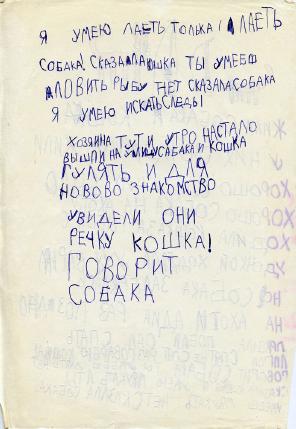 Я УМЕЮ ЛАЕТЬ ТОЛЬКА! ЛАЕТЬ
СОБАКА! СКАЗАЛА КОШКА ТЫ УМЕЕШ
ЛОВИТЬ РЫБУ НЕТ СКАЗАЛА СОБАКА
Я УМЕЮ ИСКАТЬ СЛЕДЫ
ХОЗЯИНА ТУТ И УТРО НАСТАЛО
ВЫШЛИ НА УЛИЦУ САБАКА И КОШКА
ГУЛЯТЬ И ДЛЯ
НОВОВО ЗНАКОМСТВО
УВИДЕЛИ ОНИ
РЕЧКУ КОШКА!
ГОВОРИТ
СОБАКА